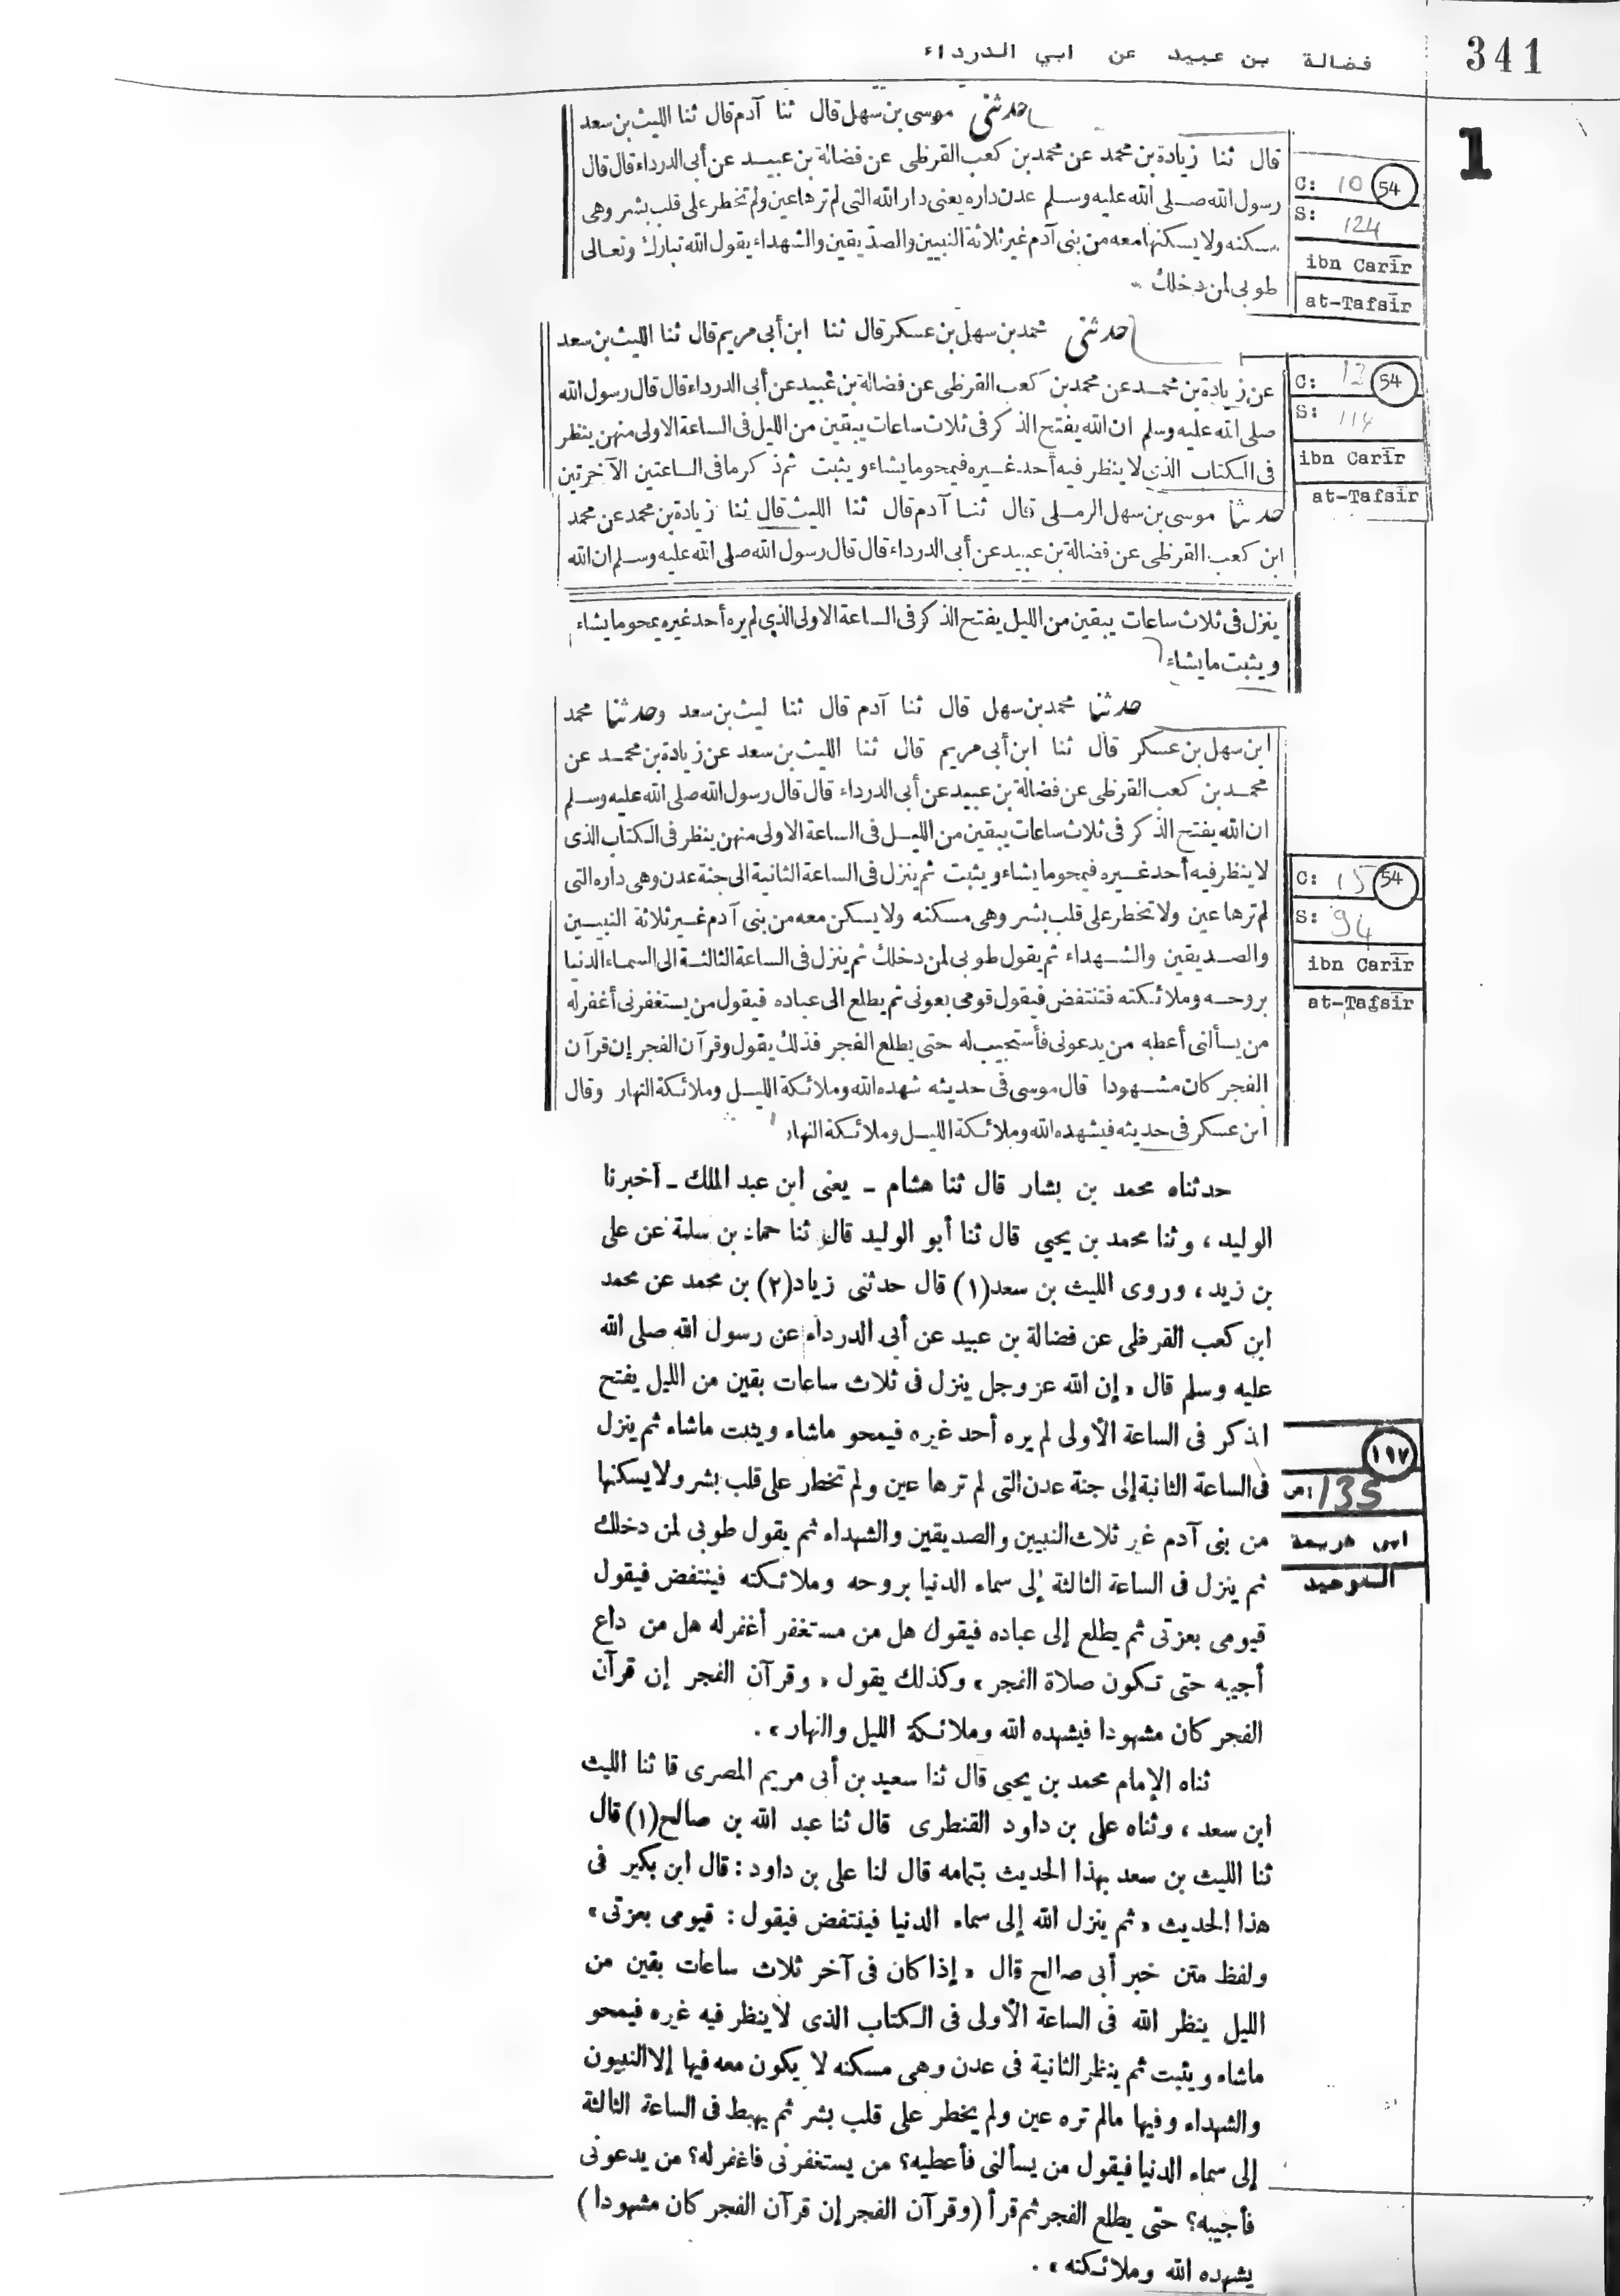 فضالة بن عبيد عن ابي الدرداء
341
1
حدثني موسى بن سهل قال ثنا آدم قال ثنا الليث بن سعد
قال ثنا زيادة بن محمد عن محمد بن كعب القرظى عن فضالة بن عبيد عن أبى الدرداء قال قال
رسول الله صلى الله عليه وسلم عدن داره يعنى دار الله التى لم ترها عين ولم تخطر على قلب بشر وهى
مسكنه ولا يسكنها معه من بنى آدم غير ثلاثة النبيين والصديقين والشهداء يقول الله تبارك وتعالى
طوبى لمن دخلك
C: 10 54
S: 124
ibn Carīr
at-Tafsīr
حدثني محمد بن سهل بن عسكر قال ثنا ابن أبى مريم قال ثنا الليث بن سعد
عن زيادة بن محمد عن محمد بن كعب القرظى عن فضالة بن عبيد عن أبى الدرداء قال قال رسول الله
صلى الله عليه وسلم ان الله يفتح الذكر فى ثلاث ساعات يبقين من الليل فى الساعة الاولى منهن ينظر
فى الكتاب الذى لا ينظر فيه أحد غيره فيمحو ما يشاء ويثبت ثم ذكر ما فى الساعتين الآخرتين
حدثنا موسى بن سهل الرملى قال ثنا آدم قال ثنا الليث قال ثنا زيادة بن محمد عن محمد
ابن كعب القرظى عن فضالة بن عبيد عن أبى الدرداء قال قال رسول الله صلى الله عليه وسلم ان الله
C: 13 54
S: 114
ibn Carīr
at-Tafsīr
ينزل فى ثلاث ساعات يبقين من الليل يفتح الذكر فى الساعة الاولى الذى لم يره أحد غيره يمحو ما يشاء
ويثبت ما يشاء
حدثنا محمد بن سهل قال ثنا آدم قال ثنا ليث بن سعد وحدثنا محمد
ابن سهل بن عسكر قال ثنا ابن أبى مريم قال ثنا الليث بن سعد عن زيادة بن محمد عن
محمد بن كعب القرظى عن فضالة بن عبيد عن أبى الدرداء قال قال رسول الله صلى الله عليه وسلم
ان الله يفتح الذكر فى ثلاث ساعات يبقين من الليل فى الساعة الاولى منهن ينظر فى الكتاب الذى
لا ينظر فيه أحد غيره فيمحو ما يشاء ويثبت ثم ينزل فى الساعة الثانية الى جنة عدن وهى داره التى
لم ترها عين ولا تخطر على قلب بشر وهى مسكنه ولا يسكن معه من بنى آدم غير ثلاثة النبيين
والصديقين والشهداء ثم يقول طوبى لمن دخلك ثم ينزل فى الساعة الثالثة الى السماء الدنيا
بروحه وملائكته فتنتفض فيقول قومى بعونى ثم يطلع الى عباده فيقول من يستغفرنى أغفر له
من يسألنى أعطه من يدعونى فأستجيب له حتى يطلع الفجر فذلك يقول وقرآن الفجر إن قرآن
الفجر كان مشهودا قال موسى فى حديثه شهده الله وملائكة الليل وملائكة النهار وقال
ابن عسكر فى حديثه فيشهده الله وملائكة الليل وملائكة النهار
C: 15 54
S: 94
ibn Carīr
at-Tafsīr
حدثناه محمد بن بشار قال ثنا هشام ـ يعنى ابن عبد الملك ـ أخبرنا
الوليد ، وثنا محمد بن يحيى قال ثنا أبو الوليد قال ثنا حماد بن سلمة عن على
بن زيد ، وروى الليث بن سعد(١) قال حدثنى زياد(٢) بن محمد عن محمد
ابن كعب القرظى عن فضالة بن عبيد عن أبى الدرداء عن رسول الله صلى الله
عليه وسلم قال « إن الله عز وجل ينزل فى ثلاث ساعات بقين من الليل يفتح
الذكر فى الساعة الأولى لم يره أحد غيره فيمحو ماشاء ويثبت ماشاء ثم ينزل
فى الساعة الثانية إلى جنة عدن التى لم ترها عين ولم تخطر على قلب بشر ولا يسكنها
من بنى آدم غير ثلاث النبيين والصديقين والشهداء ثم يقول طوبى لمن دخلك
ثم ينزل فى الساعة الثالثة إلى سماء الدنيا بروحه وملائكته فينتفض فيقول
قيومى بعزتى ثم يطلع إلى عباده فيقول هل من مستغفر أغفر له هل من داع
أجيبه حتى تكون صلاة الفجر » وكذلك يقول « وقرآن الفجر إن قرآن
الفجر كان مشهودا فيشهده الله وملائكة الليل والنهار » .
١٩٧
ص: 135
ابن خزيمة
التوحيد
ثناه الإمام محمد بن يحيى قال ثنا سعيد بن أبى مريم المصرى قا ثنا الليث
ابن سعد ، وثناه على بن داود القنطرى قال ثنا عبد الله بن صالح(١) قال
ثنا الليث بن سعد بهذا الحديث بتمامه قال لنا على بن داود : قال ابن بكير فى
هذا الحديث « ثم ينزل الله إلى سماء الدنيا فينتفض فيقول : قيومى بعزتى »
ولفظ متن خبر أبى صالح قال « إذا كان فى آخر ثلاث ساعات بقين من
الليل ينظر الله فى الساعة الأولى فى الكتاب الذى لا ينظر فيه غيره فيمحو
ماشاء ويثبت ثم ينظر الثانية فى عدن وهى مسكنه لا يكون معه فيها إلا النبيون
والشهداء وفيها مالم تره عين ولم يخطر على قلب بشر ثم يهبط فى الساعة الثالثة
إلى سماء الدنيا فيقول من يسألنى فأعطيه؟ من يستغفرنى فاغفر له؟ من يدعونى
فأجيبه؟ حتى يطلع الفجر ثم قرأ (وقرآن الفجر إن قرآن الفجر كان مشهودا)
يشهده الله وملائكته » .